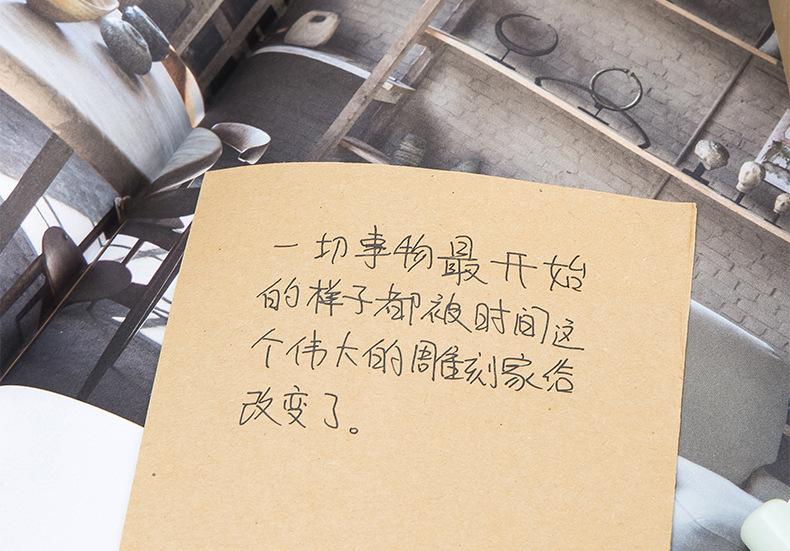 一切事物最开始
的样子都被时间这
个伟大的雕刻家给
改变了。